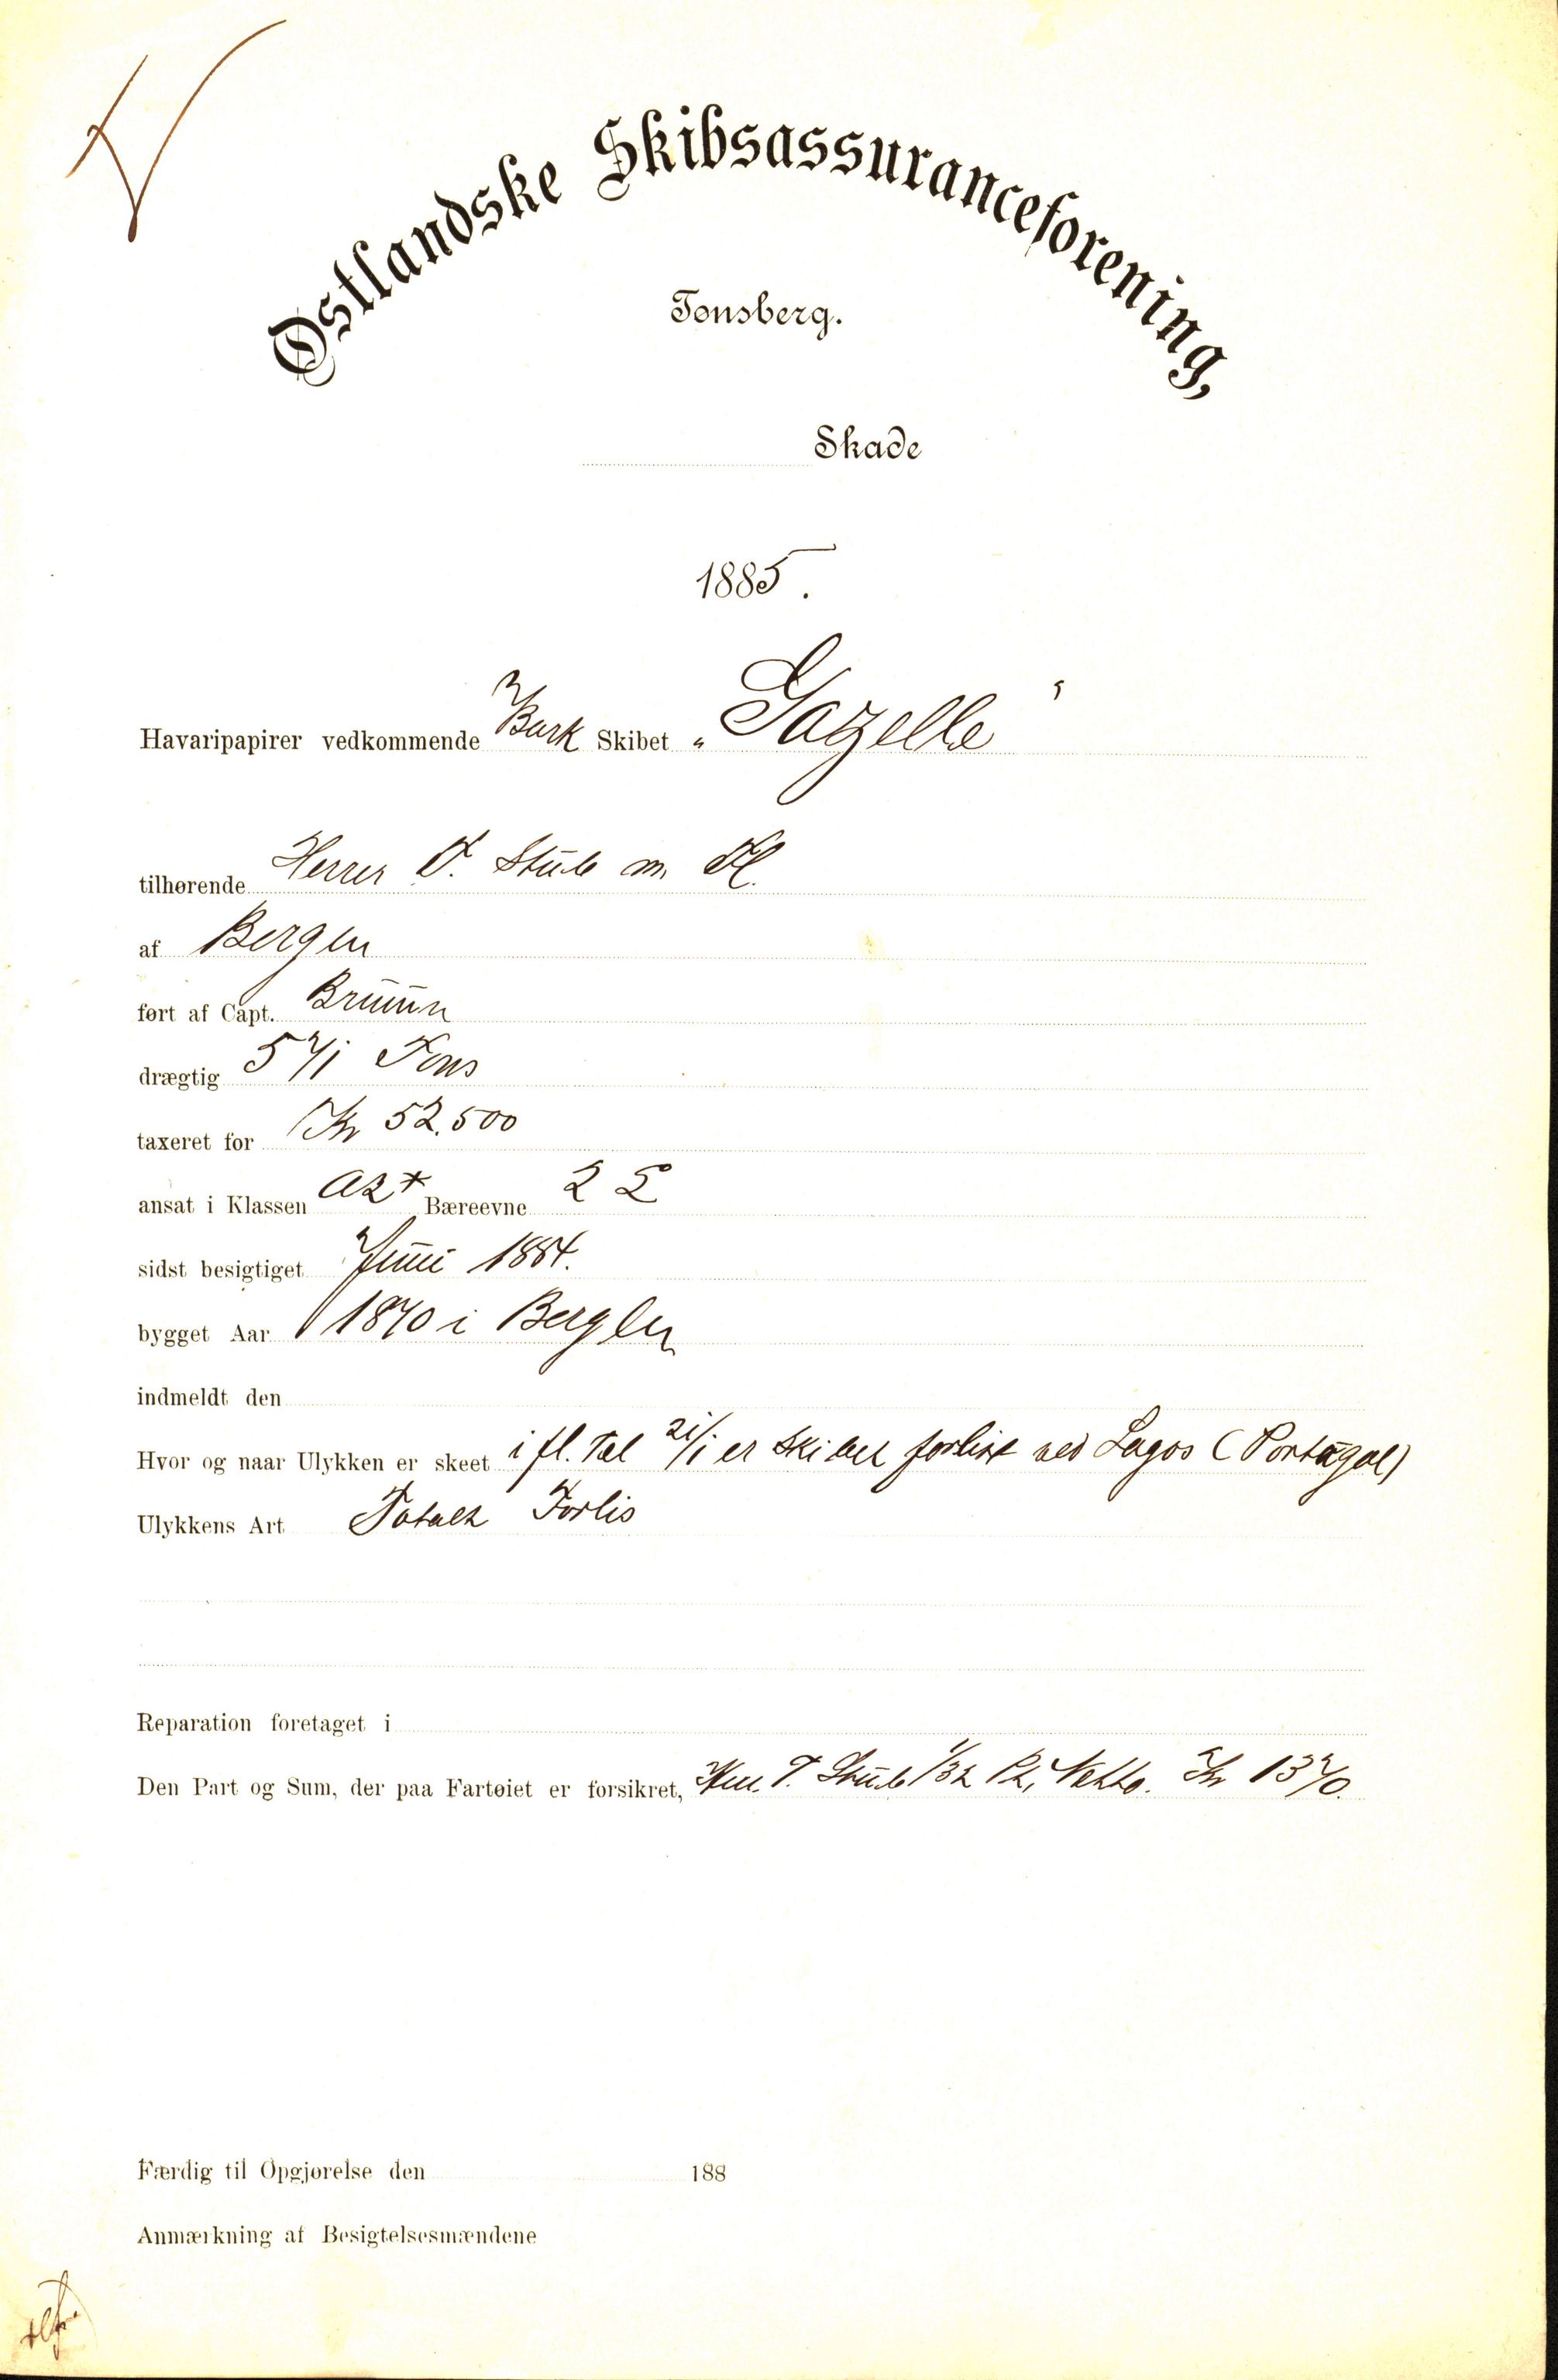 Østlandske Skibsassuranceforening,
Tønsberg.
Skade
1885.
Havaripapirer vedkommende Bark Skibet „Gazelle“
tilhørende Herrer T. Stub m. Fl.
af Bergen
ført af Capt. Bruun
drægtig 571 Tons
taxeret for Kr 52.500
ansat i Klassen A2* Bæreevne 2
sidst besigtiget Juni 1884.
bygget Aar 1870 i Bergen
indmeldt den
Hvor og naar Ulykken er skeet ifl. Tel 21/1 er Skibet forlist ved Lagos (Portugal)
Ulykkens Art Totalt Forlis
Reparation foretaget i
Den Part og Sum, der paa Fartøiet er forsikret, T. Stub 1/32 Pt, Netto. Kr 1370.
Færdig til Opgjørelse den 188
Anmærkning af Besigtelsesmændene